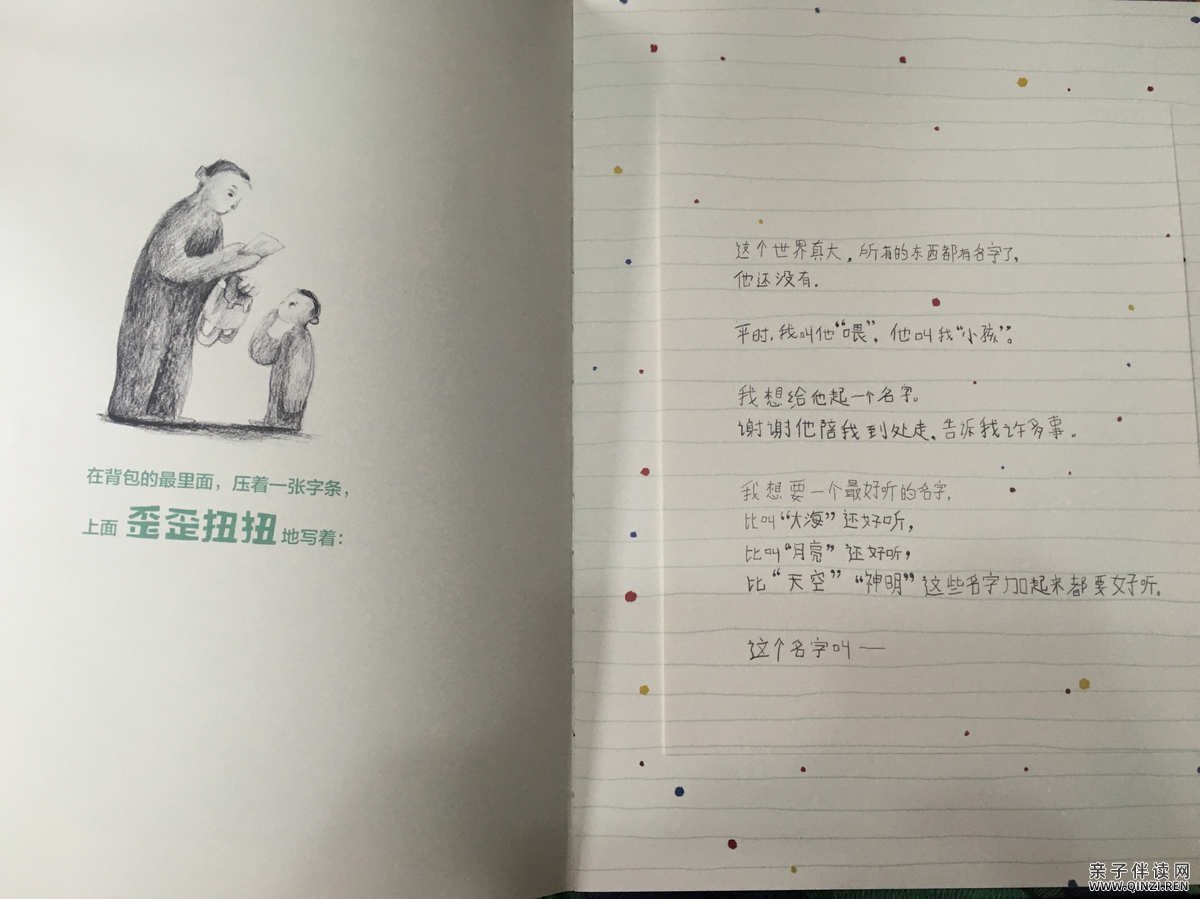 在背包的最里面，压着一张字条，
上面 歪歪扭扭 地写着：
这个世界真大，所有的东西都有名字了，
他还没有.
平时,我叫他“喂”，他叫我“小孩”。
我想给他起一个名字。
谢谢他陪我到处走，告诉我许多事。
我想要一个最好听的名字，
比叫“大海”还好听，
比叫“月亮”还好听，
比“天空”“神明”这些名字加起来都要好听。
这个名字叫——
亲子伴读网
WWW.QINZI.REN